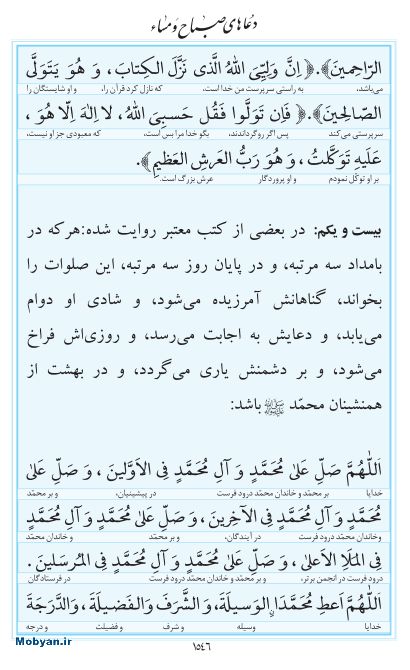 دعاهای صباح و مساء
الرّاحِمينَ﴾. ﴿ اِنَّ وَلِيِّيَ اللهُ الَّذى نَزَّلَ الكِتابَ، وَ هُوَ يَتَوَلَّى
می‌باشد، به راستی سرپرست من خدا است، که نازل کرد قرآن را، و او شایستگان را
الصّالِحينَ﴾. ﴿ فَاِن تَوَلَّوا فَقُل حَسبِيَ اللهُ، لا اِلٰهَ اِلّا هُوَ ،
سرپرستی می‌کند پس اگر روگرداندند، بگو خدا مرا بس است، که معبودی جز او نیست،
عَلَيهِ تَوَكَّلتُ ، وَ هُوَ رَبُّ العَرشِ العَظيمِ﴾.
بر او توکّل نمودم و او پروردگار عرش بزرگ است.
بیست و یکم: در بعضی از کتب معتبر روایت شده:هرکه در
بامداد سه مرتبه، و در پایان روز سه مرتبه، این صلوات را
بخواند، گناهانش آمرزیده می‌شود، و شادی او دوام
می‌یابد، و دعایش به اجابت می‌رسد، و روزی‌اش فراخ
می‌شود، و بر دشمنش یاری می‌گردد، و در بهشت از
همنشینان محمّد ﷺ باشد:
اَللّٰهُمَّ صَلِّ عَلىٰ مُحَمَّدٍ وَ آلِ مُحَمَّدٍ فِى الاَوَّلينَ ، وَ صَلِّ عَلىٰ
خدایا بر محمّد و خاندان محمّد درود فرست در پیشینیان، و بر محمّد
مُحَمَّدٍ وَ آلِ مُحَمَّدٍ فِى الآخِرينَ، وَ صَلِّ عَلىٰ مُحَمَّدٍ وَ آلِ مُحَمَّدٍ
وخاندان محمّد درود فرست در آیندگان، و بر محمّد و خاندان محمّد
فِى المَلَاِ الاَعلىٰ، وَ صَلِّ عَلىٰ مُحَمَّدٍ وَ آلِ مُحَمَّدٍ فِى المُرسَلينَ .
درود فرست در انجمن برتر، و بر محمّد و خاندان محمّد درود فرست در فرستادگان
اَللّٰهُمَّ اَعطِ مُحَمَّدَاً الوَسيلَةَ، وَ الشَّرَفَ وَالفَضيلَةَ، وَالدَّرَجَةَ
خدایا وسیله و شرف و فضیلت و درجه
۱۵۴۶
Mobyan.ir